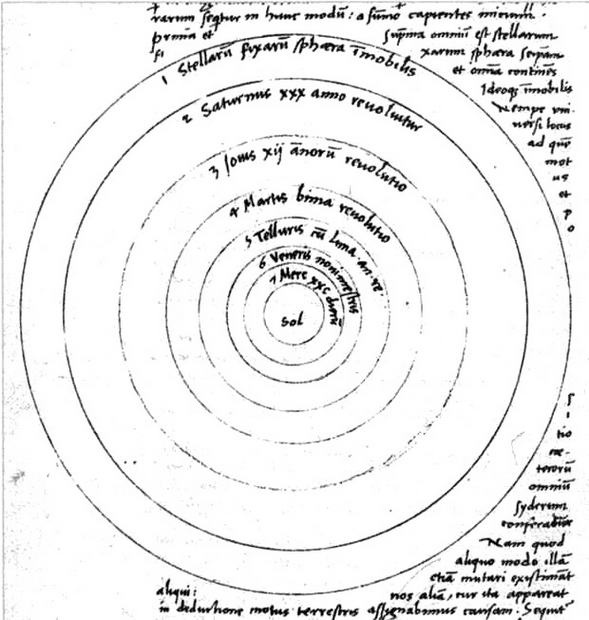 rarum sequtur in hunc modū: a sumo capientes inicium.
prima et suprema omniū est stellarum
fi xarum sphæra seipsam
et omnia continēs
Ideoqz īmobilis
Nempe vni-
uersi locus
ad quē
mot
us
et
p
o
1 Stellarū fixarū sphæra īmobilis
2 Saturnus xxx anno reuoluitur
3 Iouis xij ānorū reuolutio
4 Martis bima reuolutio
5 Telluris cū luna an. re.
6 Veneris nonimestris
7 Merc xxc dierū
Sol
S
i
tio
cæ-
terorū
omniū
syderum
conferatur
Nam quod
aliquo modo illā
etiā mutari existimāt
aliqui: nos aliā, cur ita appareat
in deductione motus terrestris assignabimus causam. Sequit